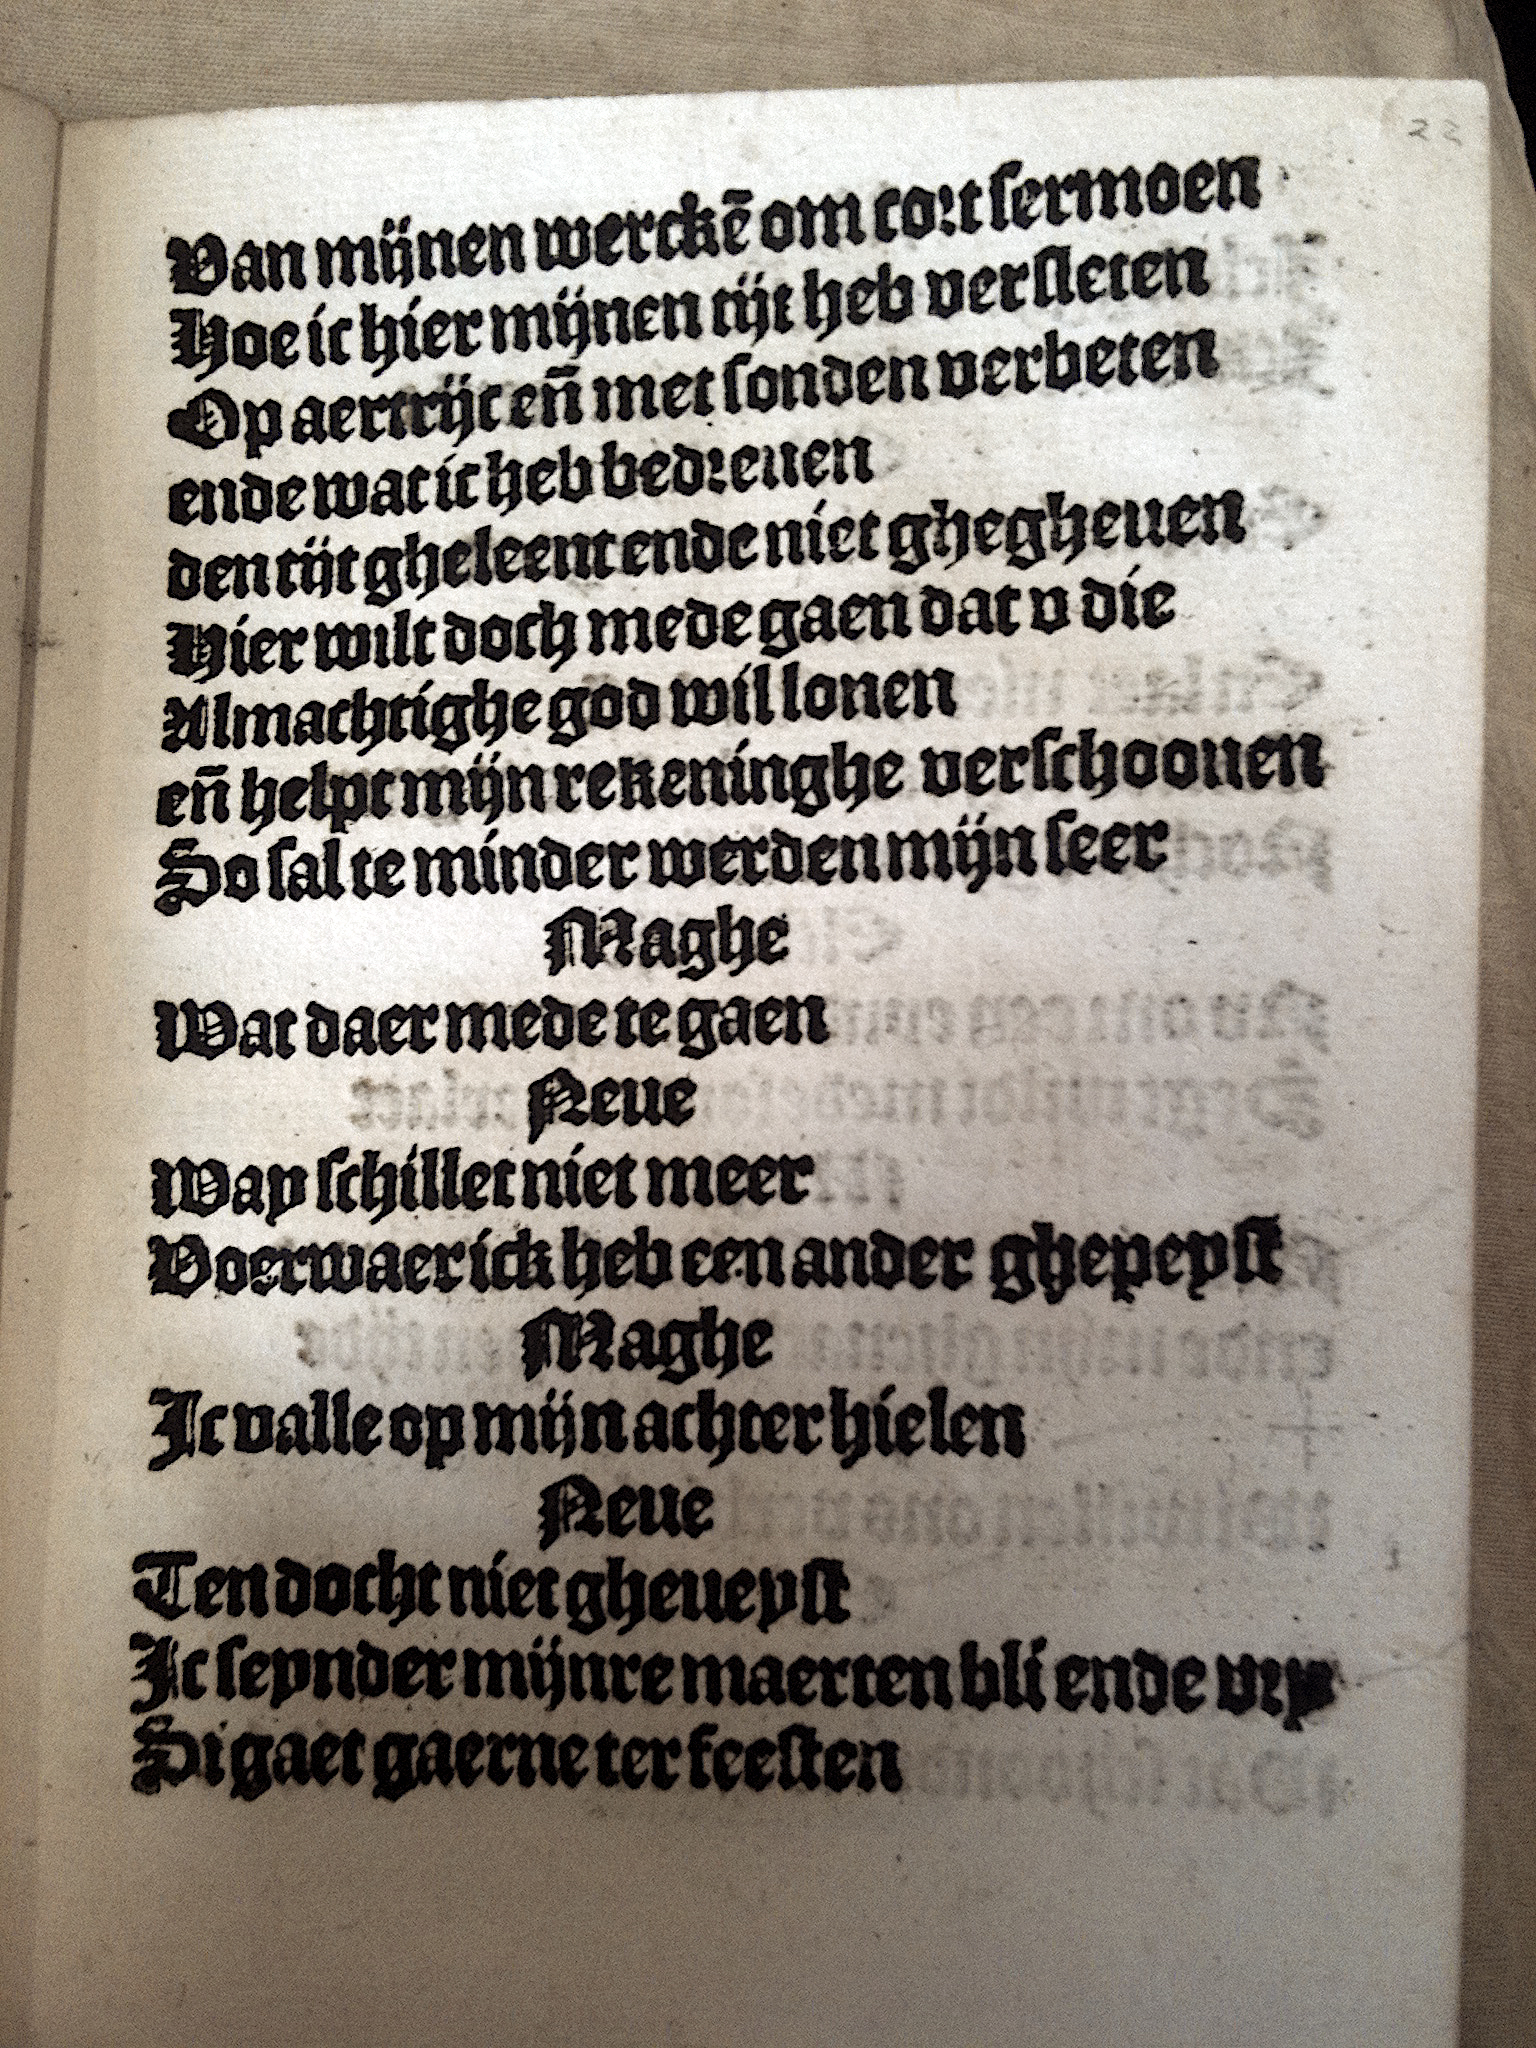 22
Van mijnen werckē om cort sermoen
Hoe ic hier mijnen tijt heb versleten
Op aertrijc eñ met sonden verbeten
ende wat ic heb bedreuen
den tijt gheleent ende niet ghegheuen
Hier wilt doch mede gaen dat v die
Almachtighe god wil lonen
eñ helpt mijn rekeninghe verschoonen
So sal te minder werden mijn seer
Maghe
Wat daer mede te gaen
Neue
Way schillet niet meer
Voerwaer ick heb een ander ghepeyst
Maghe
Ic valle op mijn achter hielen
Neue
Ten docht niet gheueyst
Ic seynder mijnre maerten bli ende vry
Si gaet gaerne ter feesten